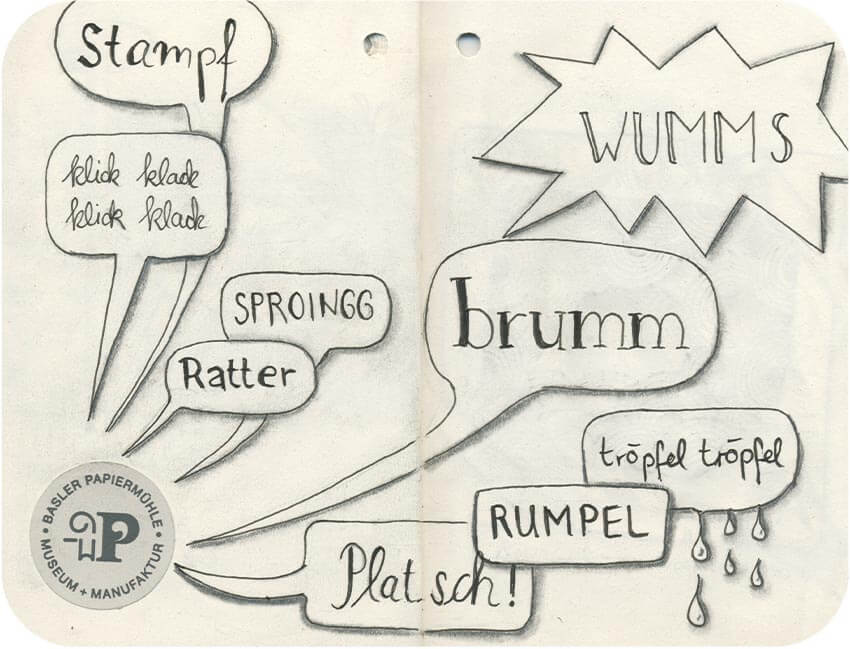 Stampf
klick klack
klick klack
WUMMS
SPROINGG
Ratter
brumm
tröpfel tröpfel
RUMPEL
Platsch!
BASLER PAPIERMÜHLE
MUSEUM + MANUFAKTUR